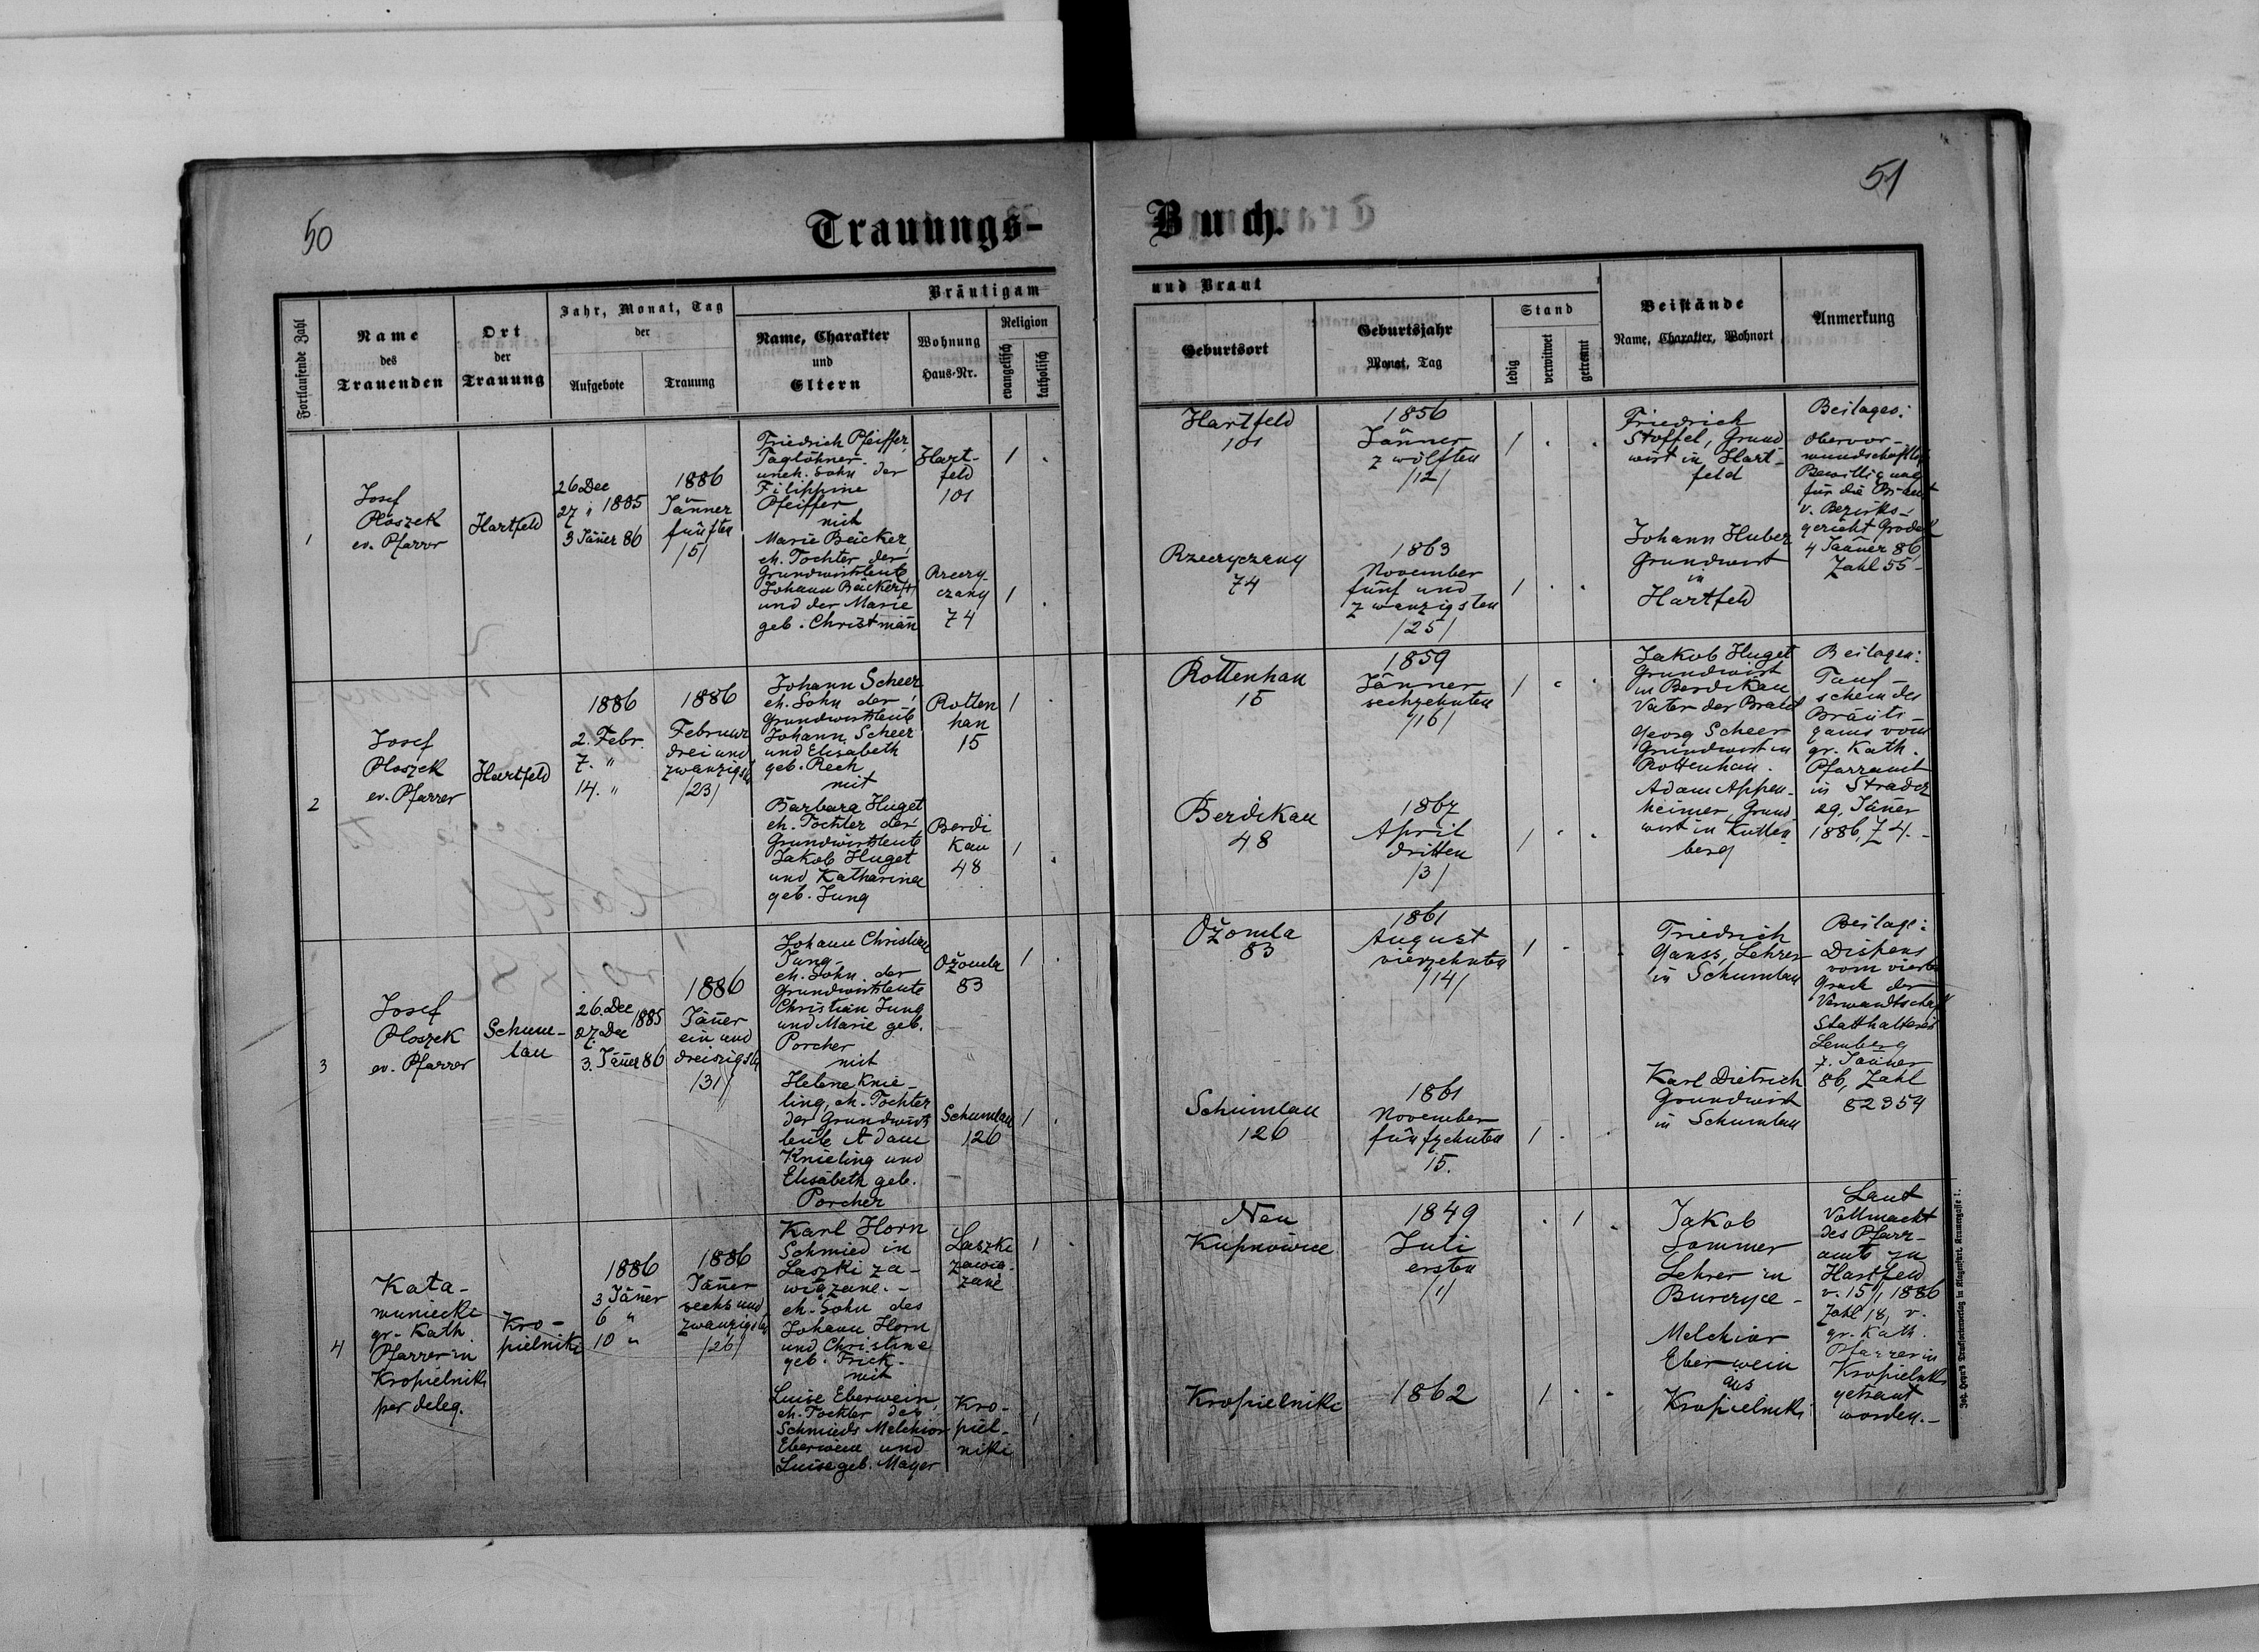 50
51
Trauungs-
Buch.
Fortlaufende Zahl
Name
des
Trauenden
Ort
der
Trauung
Jahr, Monat, Tag
der
Aufgebote
Trauung
Bräutigam
Name, Charakter
und
Eltern
Wohnung
Haus-Nr.
Religion
evangelisch
katholisch
und Braut
Geburtsort
Geburtsjahr
Monat, Tag
Stand
ledig
verwitwet
getrennt
Beistände
Name, Charakter, Wohnort
Anmerkung
1
Josef
Ploszek
ev. Pfarrer
Hartfeld
26 Dec
27 " 1885
3 Jäner 86
1886
Jänner
fünften
/5/
Friedrich Pfeiffer,
Taglöhner
uneh. Sohn der
Filippine
Pfeiffer
mit
Marie Bäcker,
eh. Tochter der
Grundwirtsleute
Johann Bäcker /†/
und der Marie
geb. Christmañ
Hart-
feld
101
1 .
Rzeczy-
czany
74
1 .
Hartfeld
101
1856
Jänner
zwölften
/12/
1 . .
Rzeczyczany
74
1863
November
fünf und
zwanzigsten
/25/
1 . .
Friedrich
Stoffel, Grund-
wirt in Hart-
feld
Johann Huber
Grundwirt
in
Hartfeld
Beilagen:
Obervor-
mundschaftl.
Bewilligung
für die Braut
v. Bezirks-
gericht Grodek
4 Jänner 86
Zahl 55-
2
Josef
Ploszek
ev. Pfarrer
Hartfeld
1886
2. Febr.
7. "
14. "
1886
Februar
drei und
zwanzigsten
/23/
Johann Scheer
eh. Sohn der
Grundwirtsleute
Johann Scheer
und Elisabeth
geb. Rech
mit
Barbara Huget
eh. Tochter der
Grundwirtsleute
Jakob Huget
und Katharina
geb. Jung
Rotten
han
15
1 .
Berdi
kau
48
1 .
Rottenhan
15
1859
Jänner
sechzehnten
/16/
1 . .
Berdikau
48
1867
April
dritten
/3/
1 . .
Jakob Huget
Grundwirt
in Berdikau
Vater der Braut
Georg Scheer
Grundwirt in
Rottenhan.
Adam Appen-
heimer, Grund-
wirt in Kutten-
berg
Beilagen:
Tauf-
schein des
Bräuti-
gams vom
gr. Kath.
Pfarramt
in Stradcz
29. Jäner
1886, Z 4. -
3
Josef
Ploszek
ev. Pfarrer
Schum-
lau
26. Dec
27. Dec 1885
3. Jäner 86
1886
Jäner
ein und
dreiszigsten
/31/
Johann Christian
Jung
eh. Sohn der
Grundwirtsleute
Christian Jung
und Marie geb.
Porcher
mit
Helene Knie-
ling, eh. Tochter
der Grundwirts
leute Adam
Knieling und
Elisabeth geb.
Porcher
Ożomla
83
1 .
Schumlau
126
1 .
Ożomla
83
1861
August
vierzehnten
/14/
1 .
Schumlau
126
1861
November
fünfzehnten
15.
1 . .
Friedrich
Ganss, Lehrer
in Schumlau
Karl Dietrich
Grundwirt
in Schumlau
Beilage:
Dispens
vom vierten
Grade der
Verwandtschaft
Statthalterei
Lemberg
7. Jänner
86, Zahl
82359
4
Kata-
muniecki
gr. Kath.
Pfarrer in
Kropielniki
per deleg.
Kro-
pielniki
1886
3 Jäner
6 "
10 "
1886
Jäner
sechs und
zwanzigsten
/26/
Karl Horn
Schmied in
Laszki za-
wiązane. -
eh. Sohn des
Johann Horn
und Christine
geb. Frick.
mit
Luise Eberwein,
eh. Tochter des
Schmieds Melchior
Eberwein und
Luise geb. Mayer
Laszki
zawią-
zane
1 .
Kro-
piel-
niki
1
Neu
Kupnowice
1849
Juli
ersten
/1/
. 1 .
Kropielniki
1862
1 . .
Jakob
Sommer
Lehrer in
Burczyce -
Melchior
Eberwein
aus
Kropielniki
Laut
Vollmacht
des Pfarr-
amts zu
Hartfeld
v. 15/1 1886
Zahl 18, v.
gr. Kath.
Pfarrer in
Kropielniki
getraut
worden. -